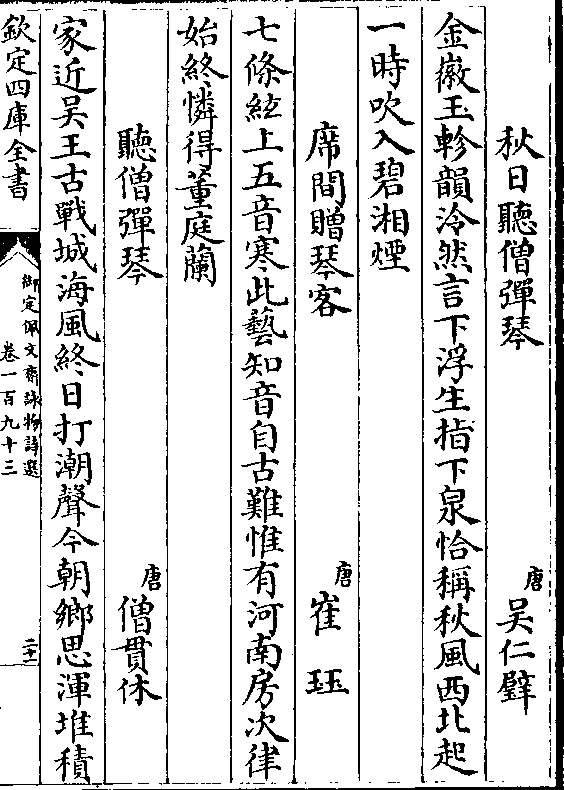 秋日聽僧彈琴 唐 吴仁璧
金徽玉軫韻泠然言下浮生指下泉恰稱秋風西北起
一時吹入碧湘煙
席間贈琴客 唐 崔珏
七條絃上五音寒此藝知音自古難惟有河南房次律
始終憐得董庭蘭
聽僧彈琴 唐 僧貫休
家近吴王古戰城海風終日打潮聲今朝鄉思渾堆積
欽定四庫全書
御定佩文齋詠物詩選
卷一百九十三
二十一